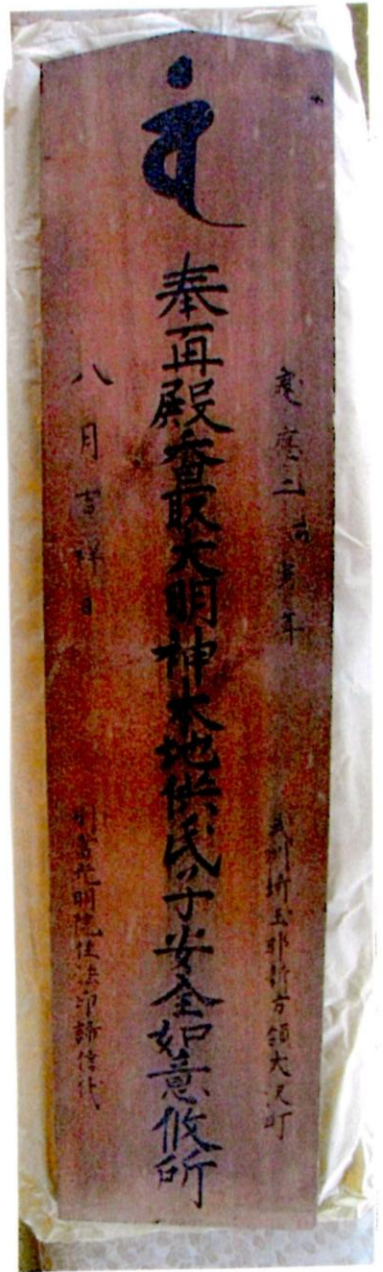 慶應二丙寅年
武州埼玉郡新方領大沢町
奉再殿香最大明神本地供氏子安全如意攸所
八月吉祥日
別當光明院住法印諦信代